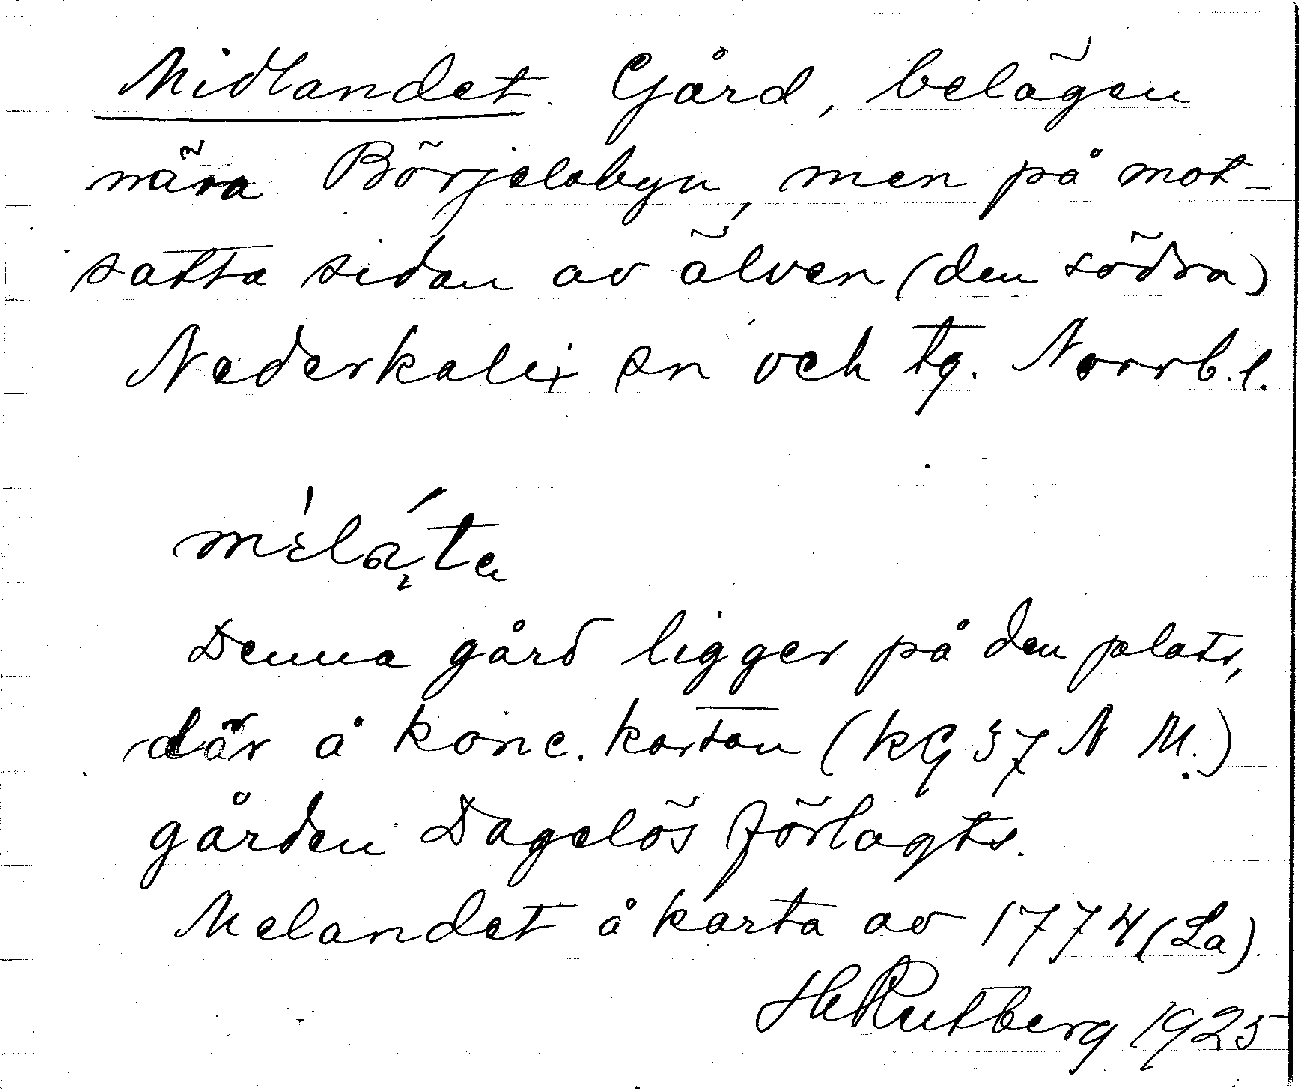 Midlandet. Gård, belägen
nära Börjelsbyn, men på mot-
satta sidan av älven (den södra)
Nederkalix sn och tg. Norrb. l.
Denna gård ligger på den plats,
där å konc. kartan (KG 37 N M.)
gården Dagelös förlagts.
Melandet å karta av 1774 (La)
H Rutberg 1925